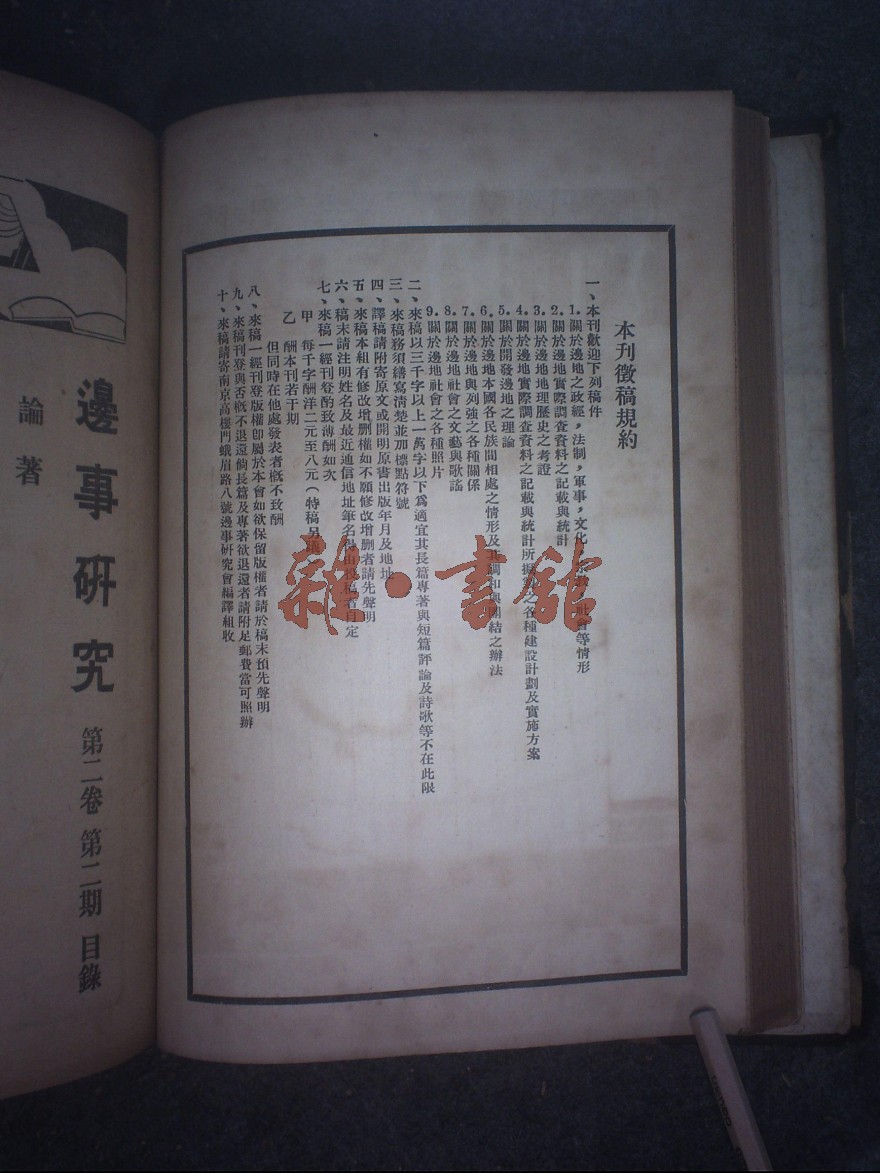 本刋徵稿規約
一、本刊歡迎下列稿件
1.關於邊地之政經，法制，軍事，文化，宗教，社會等情形
2.關於邊地實際調查資料之記載與統計
3.關於邊地地理歷史之考證
4.關於邊地實際調查資料之記載與統計所擬製之各種建設計劃及實施方案
5.關於開發邊地之理論
6.關於邊地本國各民族間相處之情形及其調和與團結之辦法
7.關於邊地與列強之各種關係
8.關於邊地社會之文藝與歌謠
9.關於邊地社會之各種照片
二、來稿以三千字以上一萬字以下爲適宜其長篇專著與短篇評論及詩歌等不在此限
三、來稿務須繕寫清楚並加標點符號
四、譯稿請附寄原文或開明原書出版年月及地址
五、來稿本組有修改增删權如不願修改增删者請先聲明
六、稿末請注明姓名及最近通信地址筆名得由投稿者自定
七、來稿一經刊登酌致薄酬如次
甲　每千字酬洋二元至八元（特稿另議
乙　酬本刊若干期
但同時在他處發表者槪不致酬
八、來稿一經刊登版權卽屬於本會如欲保留版權者請於稿末預先聲明
九、來稿刊登與否槪不退還倘長篇及專著欲退還者請附足郵費當可照辦
十、來稿請寄南京高樓門峨眉路八號邊事硏究會編譯組收
雜·書館
邊事硏究 第二卷 第二期 目錄
論著